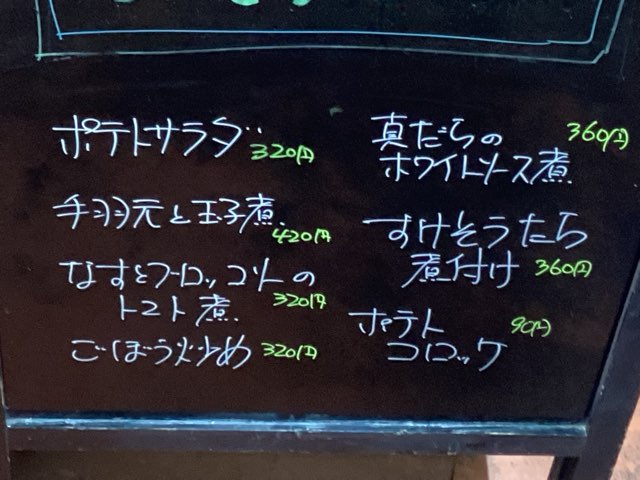 ポテトサラダ 320円
手羽元と玉子煮 420円
なすとブロッコリーの
トマト煮 320円
ごぼう炒め 320円
真だらの 360円
ホワイトソース煮
すけそうたら
煮付け 360円
ポテト 90円
コロッケ